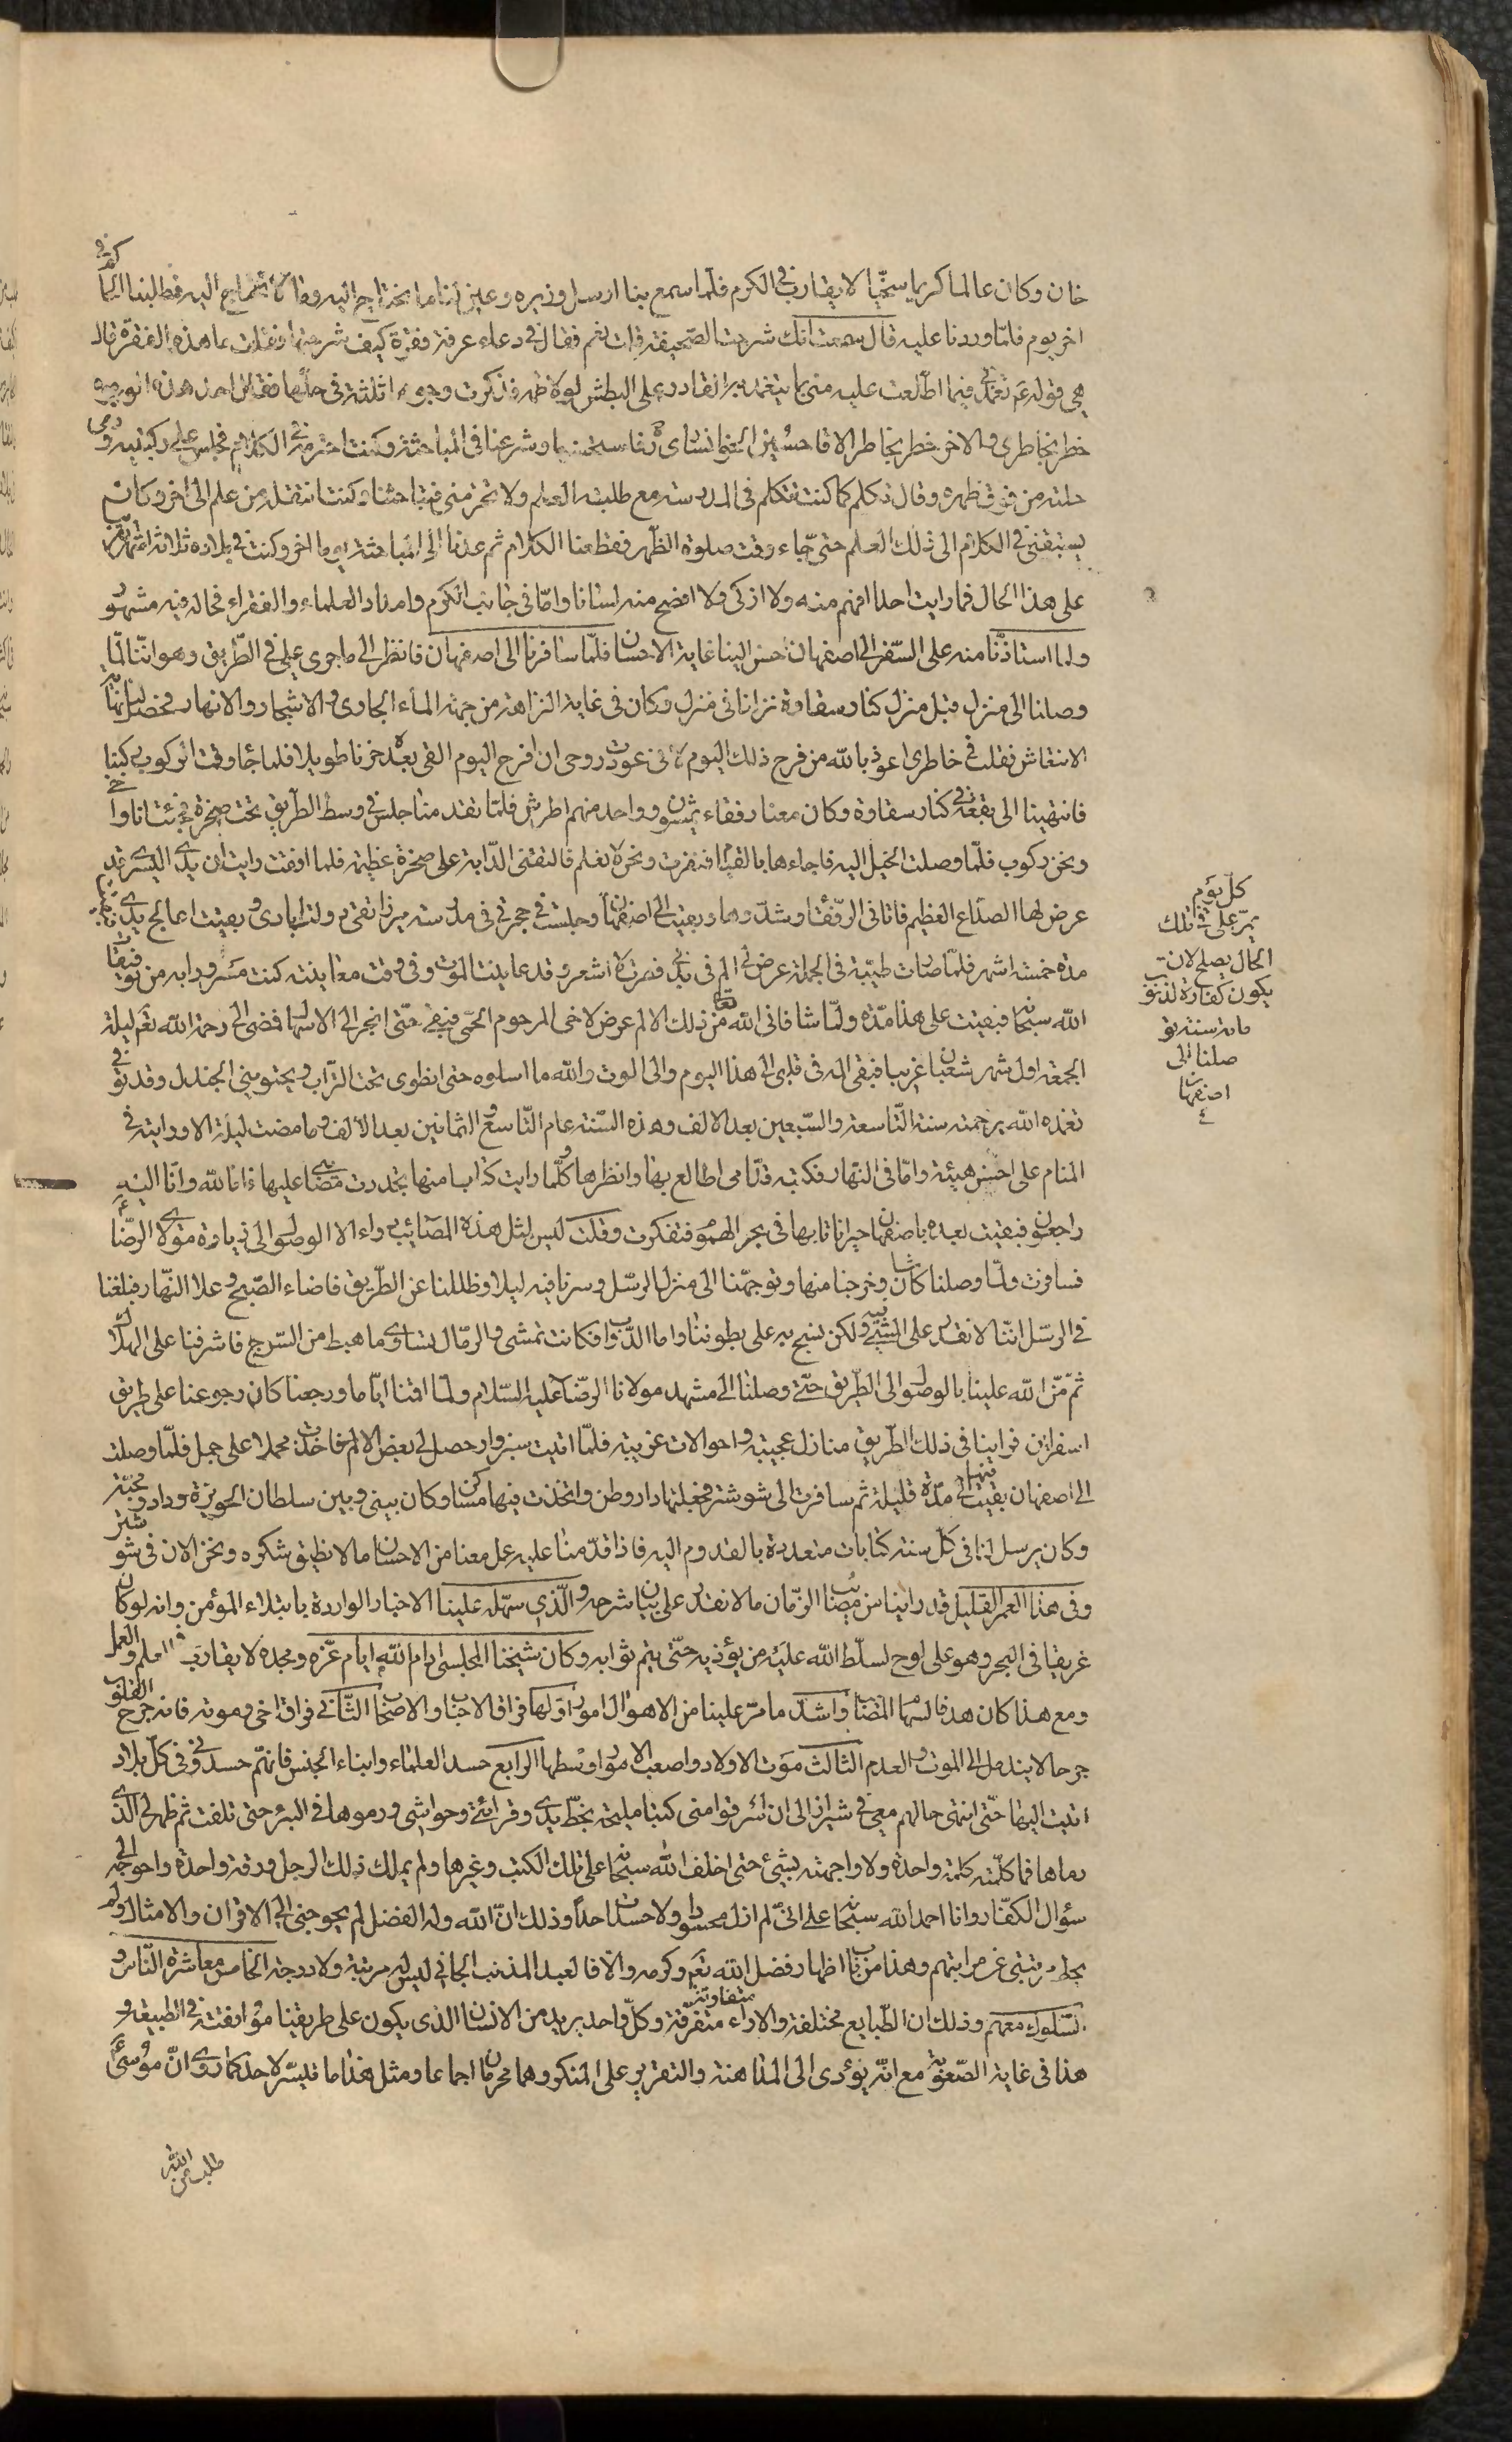 خان وكان عالما كريما سخيّا لا يقارب فى الكرم فلمّا سمع بنا ارسل وزيره وعين لنا ما نحتاج اليه وما لا نحتاج اليه فطلبنا اليه كرفى
اخر يوم فلمّا وردنا عليه قال سمعت انك شرحت الصّحيفة قلت نعم فقال فى دعاء عرفة فقرة كيف شرحتها فقلت ما هذه الفقرة قال
هى قوله عم تغمّدنى فيما اطّلعت عليه منى بما يتغمد به القادر على البطش لولا حلمه فذكرت وجوها ثلثة فى حلّها فقال احد هذه الوجوه
خطر بخاطرى والاخر خطر بخاطر الاقا حسين الخوانسارى فاستحسنها وشرعنا فى المباحثة وكنت احترمه فى الكلام فجلس على ركبتيه ورمى
حلته من فوق ظهره وقال تكلم كما كنت تتكلم فى المدرسة مع طلبة العلم ولا تحترمنى فتباحثنا وكنت انتقل من علم الى اخر وكان
يسبقنى فى الكلام الى ذلك العلم حتى جاء وقت صلوة الظهر فقطعنا الكلام ثم عدنا الى المباحثة يوما اخر وكنت فى بلاده ثلاثة اشهر تقريبا
على هذا الحال فما رايت احدا افهم منه ولا ازكى ولا افصح منه لسانا وامّا فى جانب الكرم وامداد العلماء والفقراء فحاله فيه مشهور
ولما استاذنّا منه على السّفر الى اصفهان احسن الينا غاية الاحسان فلمّا سافرنا الى اصفهان فانظر الى ما جرى على فى الطّريق وهو اننّا لمّا
وصلنا الى منزل قبل منزل كنار سقاوة نزلنا فى منزل وكان فى غاية النزاهة من جهة الماء الجارى والاشجار والانهار فحصل لنا نهاية
الانتعاش فقلت فى خاطرى اعوذ بالله من فرح ذلك اليوم لانى عودت روحى ان افرح اليوم القى بعده حزنا طويلا فلما جا وقت الركوب ركبنا
فانتهينا الى بقعة فى كنار سقاوة وكان معنا رفقاء يمشون وواحد منهم اطرش فلمّا تقدّمنا جلس فى وسط الطريق تحت صخرة فجئنا ناوا
ونحن ركوب فلمّا وصلت الخيل اليه فاجاءها بالقيام فنفرت ونحن لا نعلم فالقتنى الدّابة على صخرة عظيمة فلما افقت رايت ان يدى اليسرى قد
عرض لها الصداع العظيم فاتانى الرّفقاء وشدّوها وبقيت الى اصفهان وجلست فى حجرتى فى مدرسته ميرزا تقى دولت ابادى وبقيت اعالج يدى
مدة خمسة اشهر فلمّا صارت طيّبة فى الجملة عرض لى الم فى بدنى فصرت لا اشعر وقد عاينت الموت وفى وقت معاينته كنت مسرورا به من توفيقات
الله سبحانه فبقيت على هذا مدّة ولمّا شافانى الله تعالى من ذلك الالم عرض لاخى المرحوم الحمّى فبقى حتّى انجر الى الاسهال فمضى الى رحمة الله تعم ليلة
الجمعة اول شهر شعبان غريبا فبقى المه فى قلبى الى هذا اليوم والى الموت والله ما اسلوه حتى انطوى تحت التراب ويحتوينى الجندل وقد توفى
تغمده الله برحمته سنة التّاسعة والسّبعين بعد الالف وهذه السّنة عام التّاسع والثمانين بعد الالف وما مضت ليلة الا ورايته فى
المنام على احسن هيئة وامّا فى النهار فكتبه قدّامى اطالع بها وانظرها وكلّما رايت كتابا منها تجددت مصائبى عليها فانا لله وانّا اليه
راجعون فبقيت بعده باصفهان حيرانا تايها فى بحر الهموم فتفكرت وقلت ليس لمثل هذه المصائب دواء الا الوصول الى زيارة مولاى الرضا ع
فسافرت ولمّا وصلنا كاشان وخرجنا منها وتوجهّنا الى منزل الرمل وسرنا فيه ليلا وظللنا عن الطّريق فاضاء الصّبح وعلا النّهار فبلغنا
فى الرمل اننّا لا نقدر على المشى فيه ولكن نسبح به على بطوننا واما الدّواب فكانت تمشى والرمّال تساوى ما هبط من السّرج فاشرفنا على الهلاك
ثمّ منّ الله علينا بالوصول الى الطّريق حتّى وصلنا الى مشهد مولانا الرضا عليه السّلام ولما اقمنا ايّاما ورجعنا كان رجوعنا على طريق
اسفراين فراينا فى ذلك الطّريق منازل عجيبة واحوالات غريبة فلمّا اتيت سبزوار حصل لى بعض الالم فاخذت محملا على جمل فلمّا وصلت
الى اصفهان بقيت فيها مدّة قليلة ثم سافرت الى شوشتر فجعلتها دار وطن واتخذت فيها مسكنا وكان بينى وبين سلطان الحويزة وداد ومحبّة
وكان يرسل لنا فى كل سنة كتابات متعددة بالقدوم اليه فاذا قدّمنا عليه عمل معنا من الاحسان ما لا نطيق شكره ونحن الان فى شوشتر
وفى هذا العمر القليل قد راينا من مصائب الزّمان ما لا نقدر على بيان شرحه والّذى سهّله علينا الاخبار الواردة بابتلاء المؤمن وانه لو كان
غريقا فى البحر وهو على لوح لسلّط الله عليه من يؤذيه حتّى يتم ثوابه وكان شيخنا المجلسى ادام الله ايام عزّه ومجده لا يقارب فى العلم والعمل
ومع هذا كان هدفا لسهام المصائب واشدّ ما مرّ علينا من الاهوال امور اوّلها فراق الاحباب والاصحاب الثّانى فراق اخى وموته فانه جرح القلوب
جرحا لا يندمل الى الموت والعدم الثالث موت الاولاد واصعب الامور اوسطها الرابع حسد العلماء وابناء الجنس فانّهم حسدونى فى كلّ بلاد
اتيت اليها حتّى انتهى حالهم معى فى شيراز الى ان اسرقوا منى كتبا مليحة بخطّ يدى وقرائتى وحواشى ورموها فى البئر حتى تلفت ثم ظهر لى الّذى
رماها فما كلّمته كلمة واحدة ولا واجهته بشيئ حتى اخلف الله سبحانه على تلك الكتب وغيرها ولم يملك ذلك الرجل ورقة واحدة واحوجه الى
سؤال الكفّار وانا احمد الله سبحانه على انّى لم ازل محسودا ولا حسدت احدا وذلك انّ الله وله الفضل لم يحوجنى الى الاقران والامثال ولم
يحط مرتبتى عن مراتبهم وهذا من باب اظهار فضل الله تعم وكرمه والا فالعبد المذنب الجانى ليس له مرتبة ولا درجة الخامس معاشرة النّاس و
السّلوك معهم وذلك ان الطّبايع مختلفة والاراء متفرقة متفاوتة وكلّ واحد يريد من الانسان الذى يكون على طريقنا موافقته فى الطبيعة و
هذا فى غاية الصّعوبة مع انّه يؤدى الى المداهنة والتقرير على المنكر وهما محرمان اجماعا ومثل هذا ما تيسّر لاحد كما روى انّ موسى ع
طلب من الله
كلّ يوم
يمرّ على فى تلك
الحال يصلح لان
يكون كفارة لذنوب
ماية سنة تو
صلنا الى
اصفهان